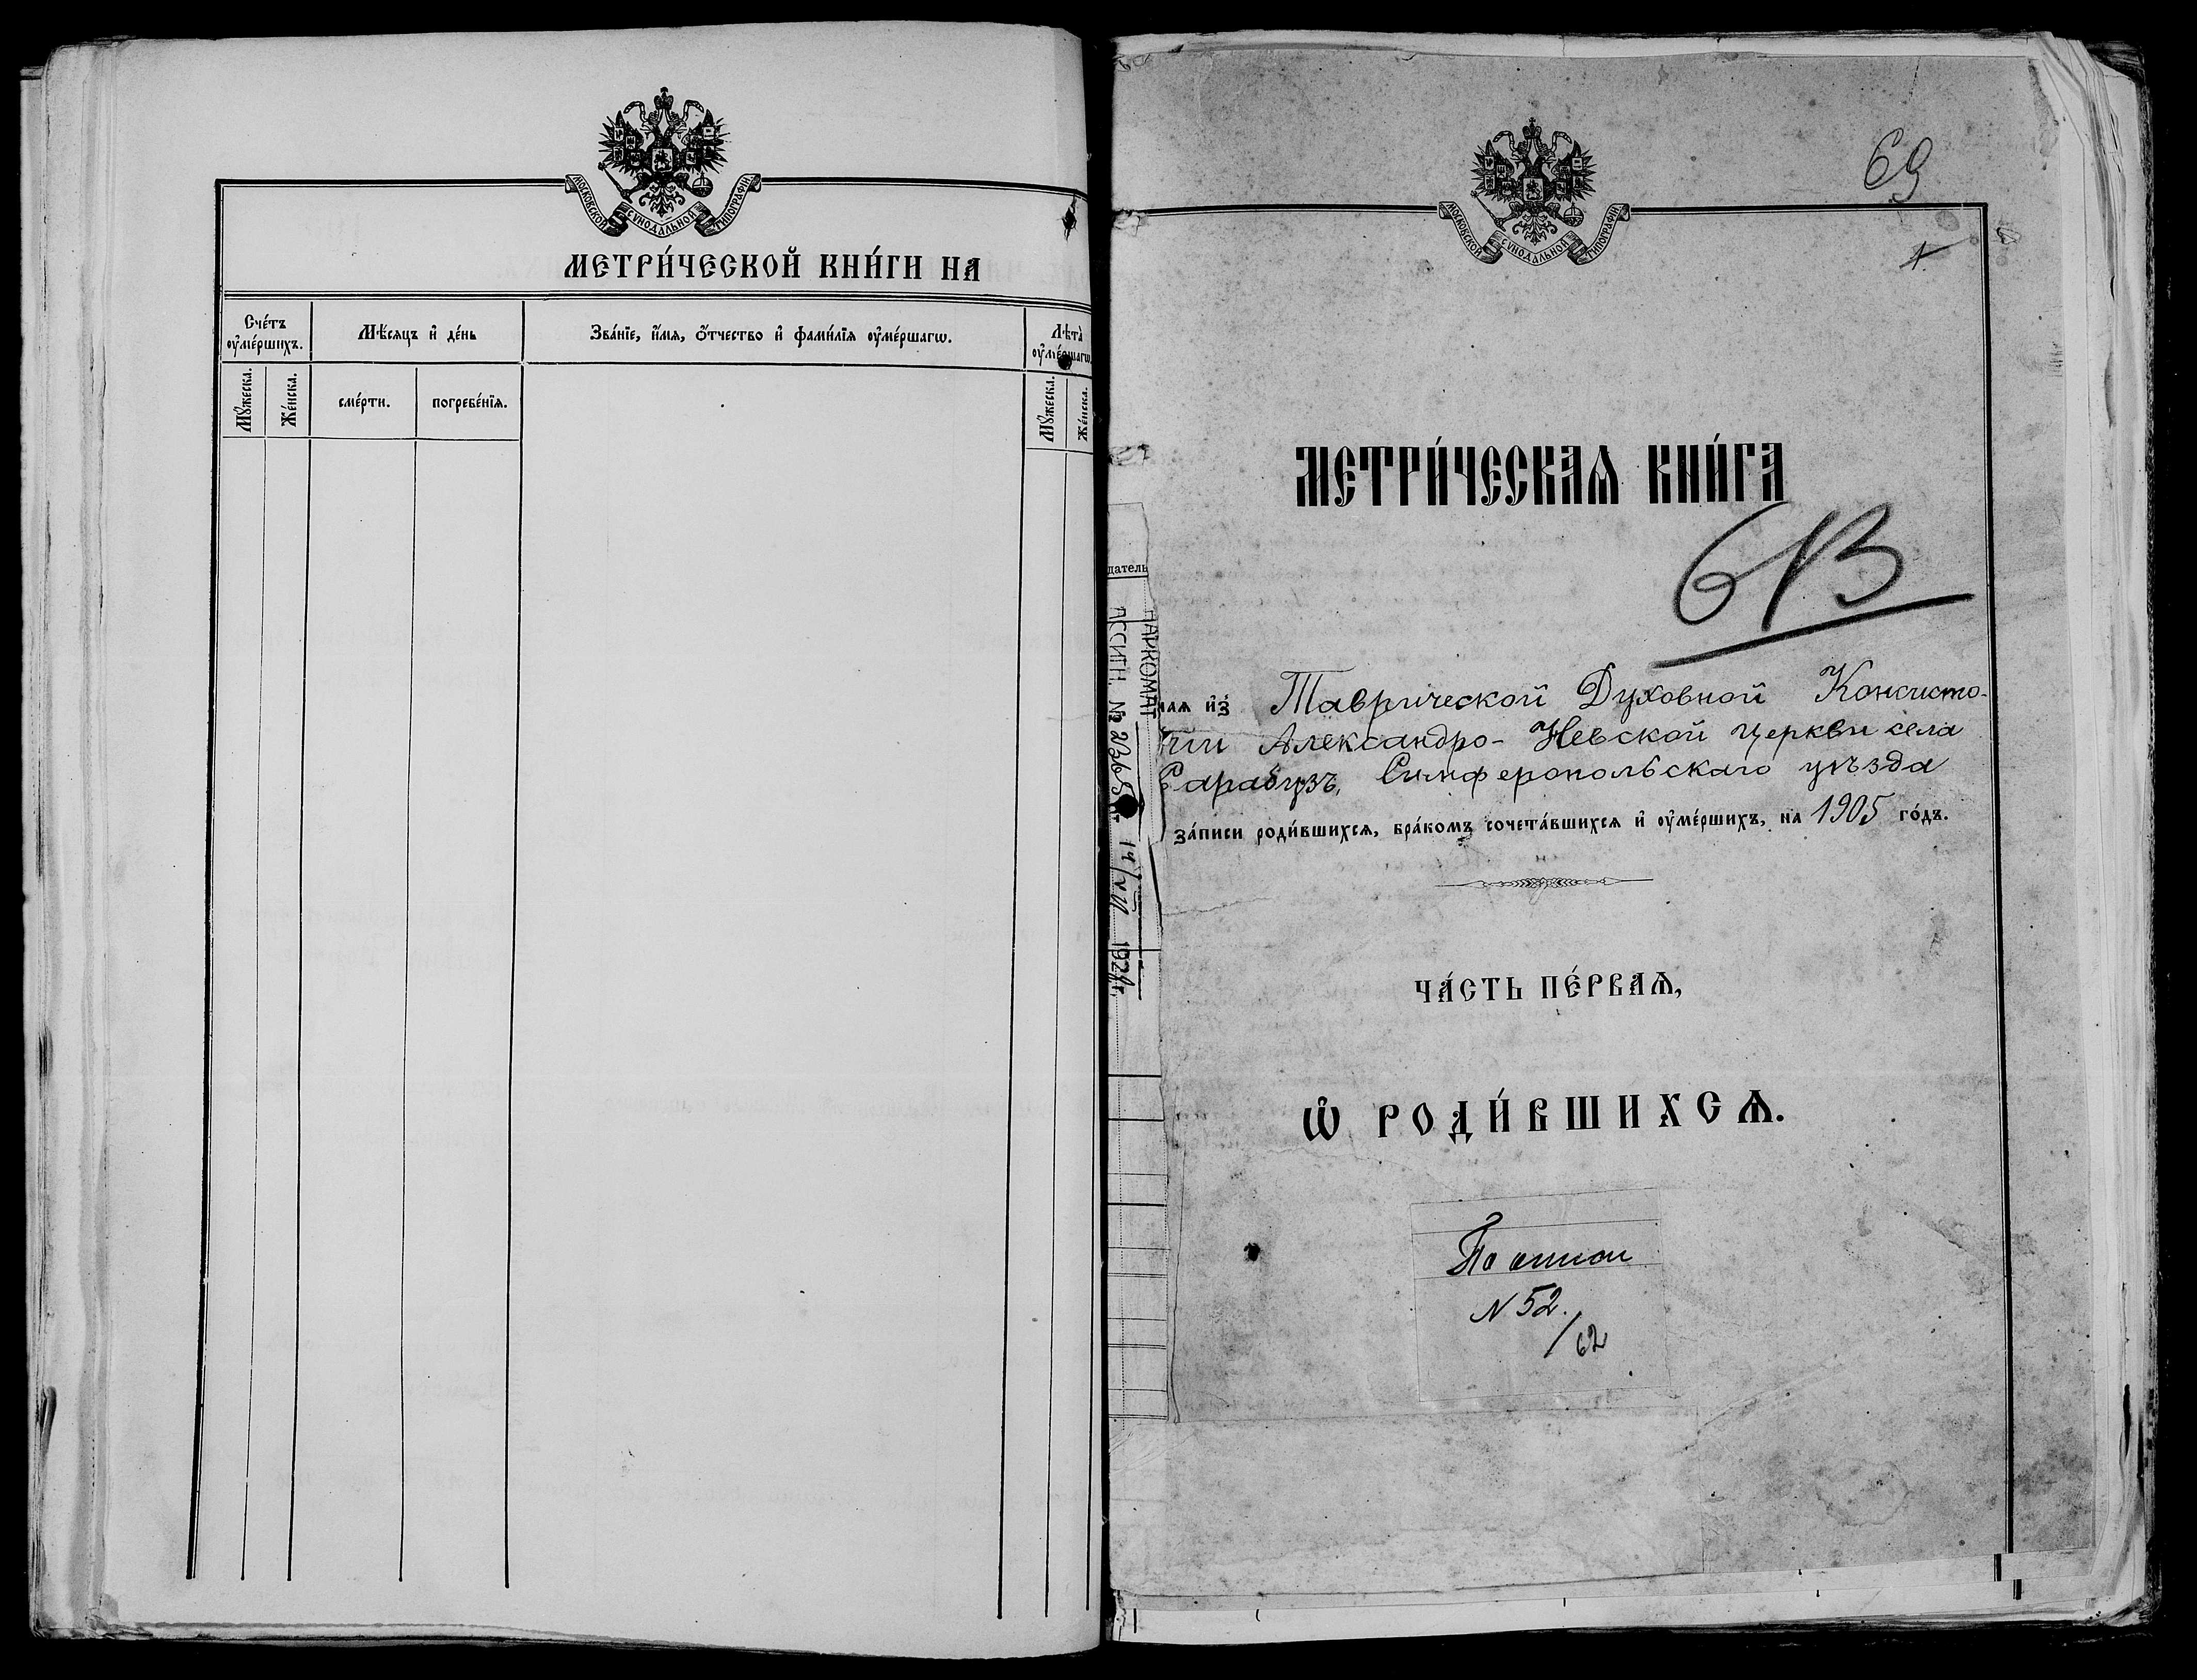 МОСКОВСКОЙ СѴНОДАЛЬНОЙ ТИПОГРАФІИ
МЕТРИ́ЧЕСКОЙ КНИ́ГИ НА
Сче́тъ оу҆ме́ршихъ.
Мѣ́сяцъ и҆ де́нь
Зва́нїе, и҆́мя, ѻ҆́тчество и҆ фами́лїя оу҆ме́ршагѡ.
Лѣ́та оу҆ме́ршагѡ
Мꙋ́жеска.
Же́нска.
сме́рти.
погребе́нїѧ.
Мꙋ́жеска.
Же́нска.
69
1
МОСКОВСКОЙ СѴНОДАЛЬНОЙ ТИПОГРАФІИ
МЕТРИ́ЧЕСКАѦ КНИ́ГА
613
наѧ и҆з̾ Таврической Духовной Консисто-
ріи Александро-Невской церкви села
Сарабузъ, Симферопольскаго уѣзда
за́писи роди́вшихсѧ, бра́комъ сочета́вшихсѧ и҆ оу҆ме́ршихъ, на 1905 го́дъ.
ЧА́СТЬ ПЕ́РВАѦ,
Ѽ РОДИ́ВШИХСѦ.
По описи
N 52.
/62
датель
НАРКОМАТ
АССИГН. №
192